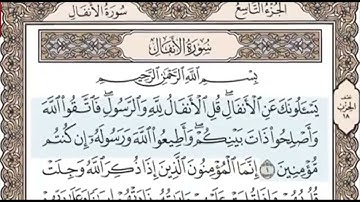 الجزء التاسع
سورة الأنفال
سورة الأنفال
بسم الله الرحمن الرحيم
يَسْـَٔلُونَكَ عَنِ ٱلْأَنفَالِ ۖ قُلِ ٱلْأَنفَالُ لِلَّهِ وَٱلرَّسُولِ ۖ فَٱتَّقُوا۟ ٱللَّهَ
وَأَصْلِحُوا۟ ذَاتَ بَيْنِكُمْ ۖ وَأَطِيعُوا۟ ٱللَّهَ وَرَسُولَهُۥٓ إِن كُنتُم
مُّؤْمِنِينَ ١ إِنَّمَا ٱلْمُؤْمِنُونَ ٱلَّذِينَ إِذَا ذُكِرَ ٱللَّهُ وَجِلَتْ
نصف
الحزب
١٨